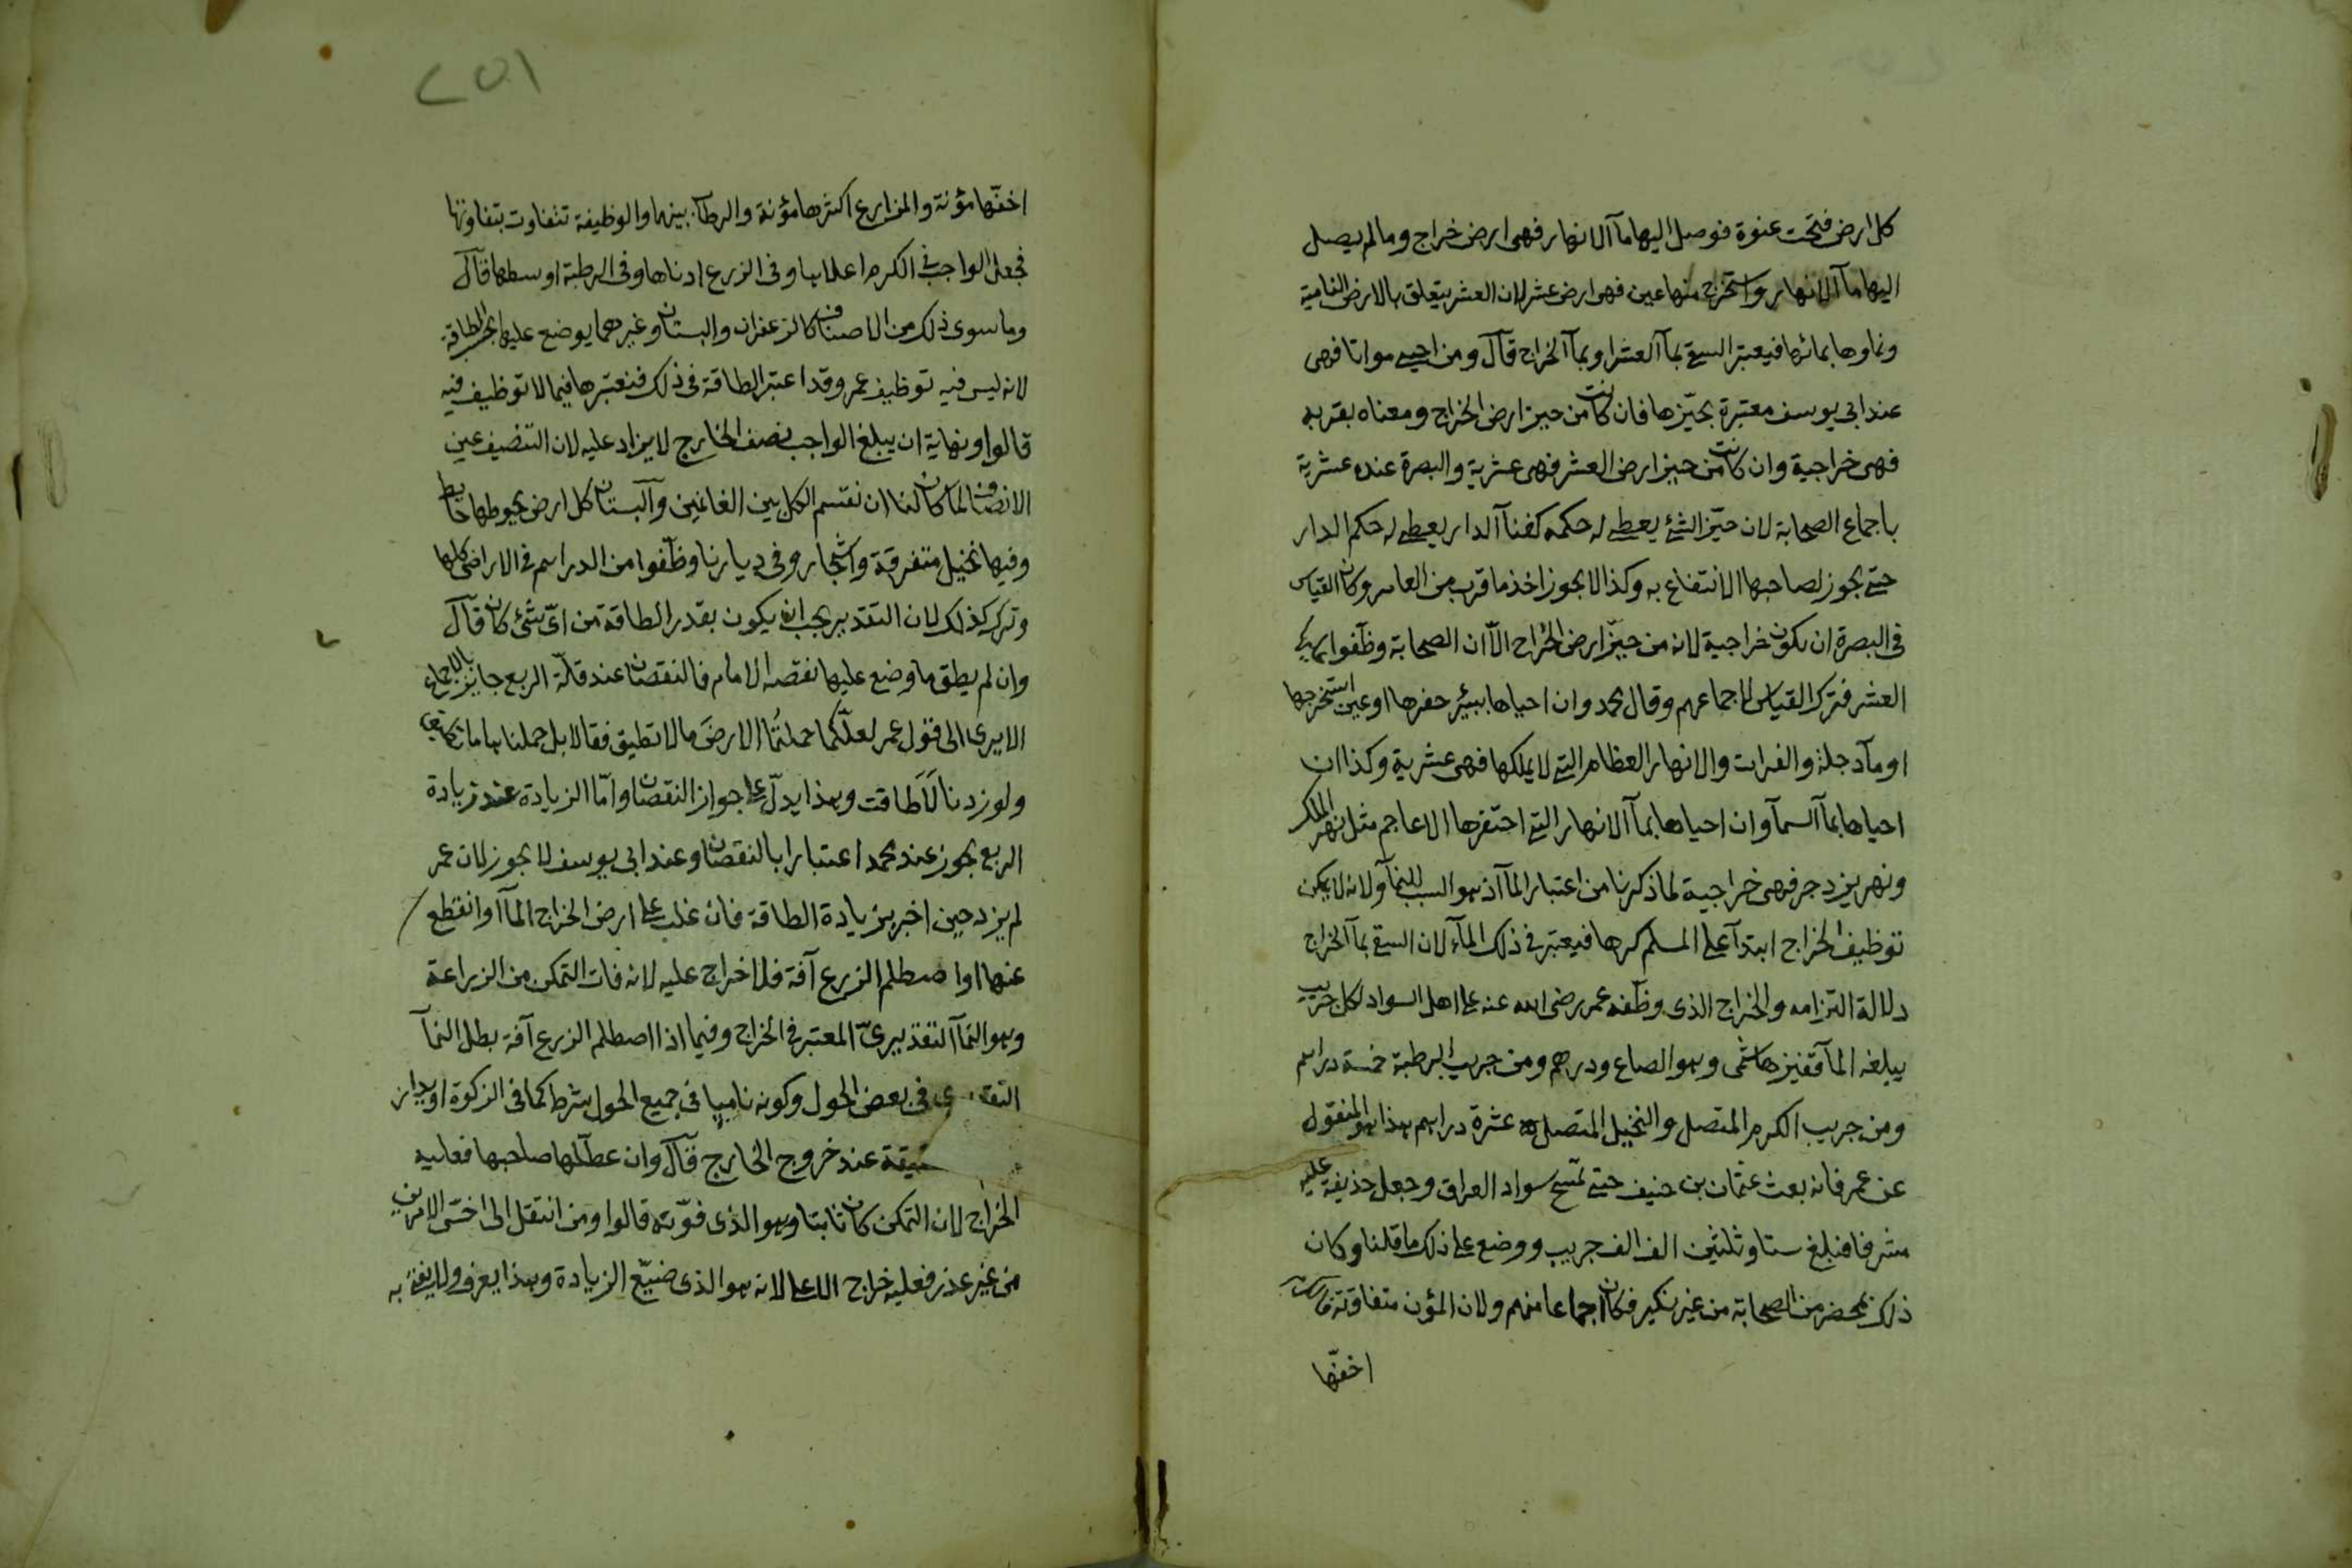 كل ارض فتحت عنوة فوصل اليها مآ الانهار فهى ارض خراج وما لم يصل
اليها مآ الانهار واستخرج منها عين فهى ارض عشر لان العشر يتعلق بالارض النامية
ونماوها بمائها فيعتبر السقى بمآ العشر او بمآ الخراج قال ومن احيى مواتا فهى
عند ابى يوسف معتبرة بحيّزها فان كانت من حيز ارض الخراج ومعناه بقربه
فهى خراجية وان كانت من حيز ارض العشر فهى عشرية والبصرة عنده عشرية
باجماع الصحابة لان حيّز الشئ يعطى له حكمه كفنآ الدار يعطى له حكم الدار
حتى يجوز لصاحبها الانتفاع به وكذا لا يجوز اخذ ما قرب من العامر وكان القياس
فى البصرة ان يكون خراجية لانه من حيّز ارض الخراج الّا ان الصحابة وظّفوا عليها
العشر فترك القياس لاجماعهم وقال محمد وان احياها ببئر حفرها او عين استخرجها
او مآ دجلة والفرات والانهار العظام التى لا يملكها فهى عشرية وكذا ان
احياها بمآ السمآ وان احياها بمآ الانهار التى احتفرها الاعاجم مثل نهر الملك
ونهر يزدجر فهى خراجية لما ذكرنا من اعتبار المآ اذ هو السبب للنمآ ولانه لا يمكن
توظيف الخراج ابتدآ على المسلم كرها فيعتبر فى ذلك المآء لان السقى بمآ الخراج
دلالة التزامه والخراج الذى وظّفه عمر رضى الله عنه على اهل السواد لكل جريب
يبلغه المآ قفيز هاشمى وهو الصاع ودرهم ومن جريب الرطبة خمسة دراهم
ومن جريب الكرم المتصل والنخيل المتصل عشرة دراهم هذا هو المنقول
عن عمر فانه بعث عثمان بن حنيف حتى تمسح سواد العراق وجعل حذيفة عليه
مشرفا فبلغ ستا وثلثين الف الف جريب ووضع على ذلك ما قلنا وكان
ذلك بمحضر من الصحابة من غير نكير فكان اجماعا منهم ولان المؤن متفاوتة فالكرم
اخفّها
٢٥١
اخفّها مؤنة والمزارع اكثرها مؤنة والرطاب بينهما والوظيفة تتفاوت بتفاوتها
فجعل الواجب فى الكرم اعلاها وفى الزرع ادناها وفى الرطبة اوسطها قال
وما سوى ذلك من الاصناف كالزعفران والبستان وغيرهما يوضع عليها بحسب الطاقة
لانه ليس فيه توظيف عمر وقد اعتبر الطاقة فى ذلك فنعتبرها فيما لا توظيف فيه
قالوا ونهاية ان يبلغ الواجب نصف الخارج لا يزاد عليه لان التنصيف عين
الانصاف لما كان لنا ان نقسم الكل بين الغانمين والبستان كل ارض يحوطها حايط
وفيها نخيل متفرقة واشجار وفى ديارنا وظّفوا من الدراهم فى الاراضى كلها
وترك كذلك لان التقدير يجب ان يكون بقدر الطاقة من اىّ شئ كان قال
وان لم يطق ما وضع عليها نقصه الامام فالنقصان عند قلّة الريع جايز بالاجماع
الا يرى الى قول عمر لعلّكما حملتُما الارضَ ما لا تطيق فقالا بل حملناها ما تطيق
ولو زدنا لَاَطاقت وهذا يدلّ على جواز النقصان وامّا الزيادة عند زيادة
الريع يجوز عند محمد اعتبارا بالنقصان وعند ابى يوسف لا يجوز لان عمر
لم يزد حين اخبر بزيادة الطاقة فان غلب على ارض الخراج المآ او انقطع
عنها او اصطلم الزرع آفة فلا خراج عليه لانه فات التمكن من الزراعة
وهو النمآ التقديرىّ المعتبر فى الخراج وفيما اذا اصطلم الزرع آفة بطل النمآ
التق ى فى بعض الحول وكونه ناميا فى جميع الحول شرط كما فى الزكوة او يدار
قيقة عند خروج الخارج قال وان عطّلها صاحبها فعليه
الخراج لان التمكن كان ثابتا وهو الذى فوّته قالوا ومن انتقل الى اخسّ الامرين
من غير عذر فعليه خراج الاعلى لانه هو الذى ضيّع الزيادة وهذا يعرف ولا يفتى به